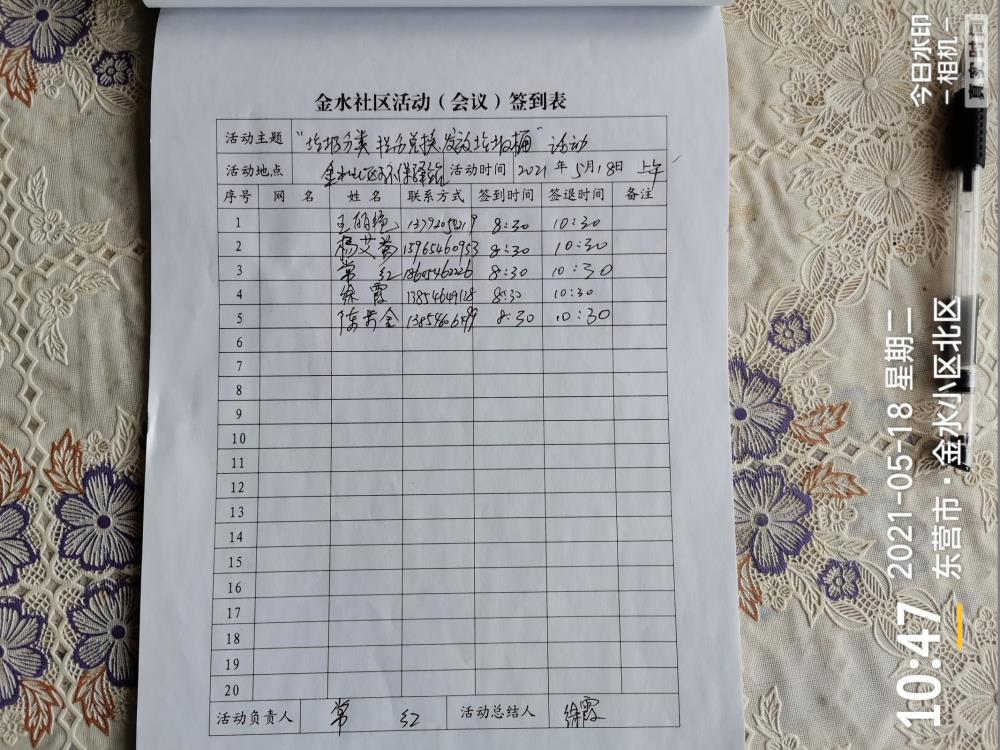 金水社区活动（会议）签到表
活动主题 "垃圾分类 积分兑换 发放垃圾桶" 活动
活动地点 金水社区环保驿站 活动时间 2021 年 5月18日 上午
序号 网 名 姓 名 联系方式 签到时间 签退时间 备注
1 王丽 8:30 10:30
2 杨艾 15965460953 8:30 10:30
3 常 红 18605462226 8:30 10:30
4 徐霞 13854649128 8:30 10:30
5 陈 金 8:30 10:30
6
7
8
9
10
11
12
13
14
15
16
17
18
19
20
活动负责人 常 红 活动总结人 徐霞
今日水印
-相机-
真实时间
10:47
2021-05-18 星期二
东营市·金水小区北区